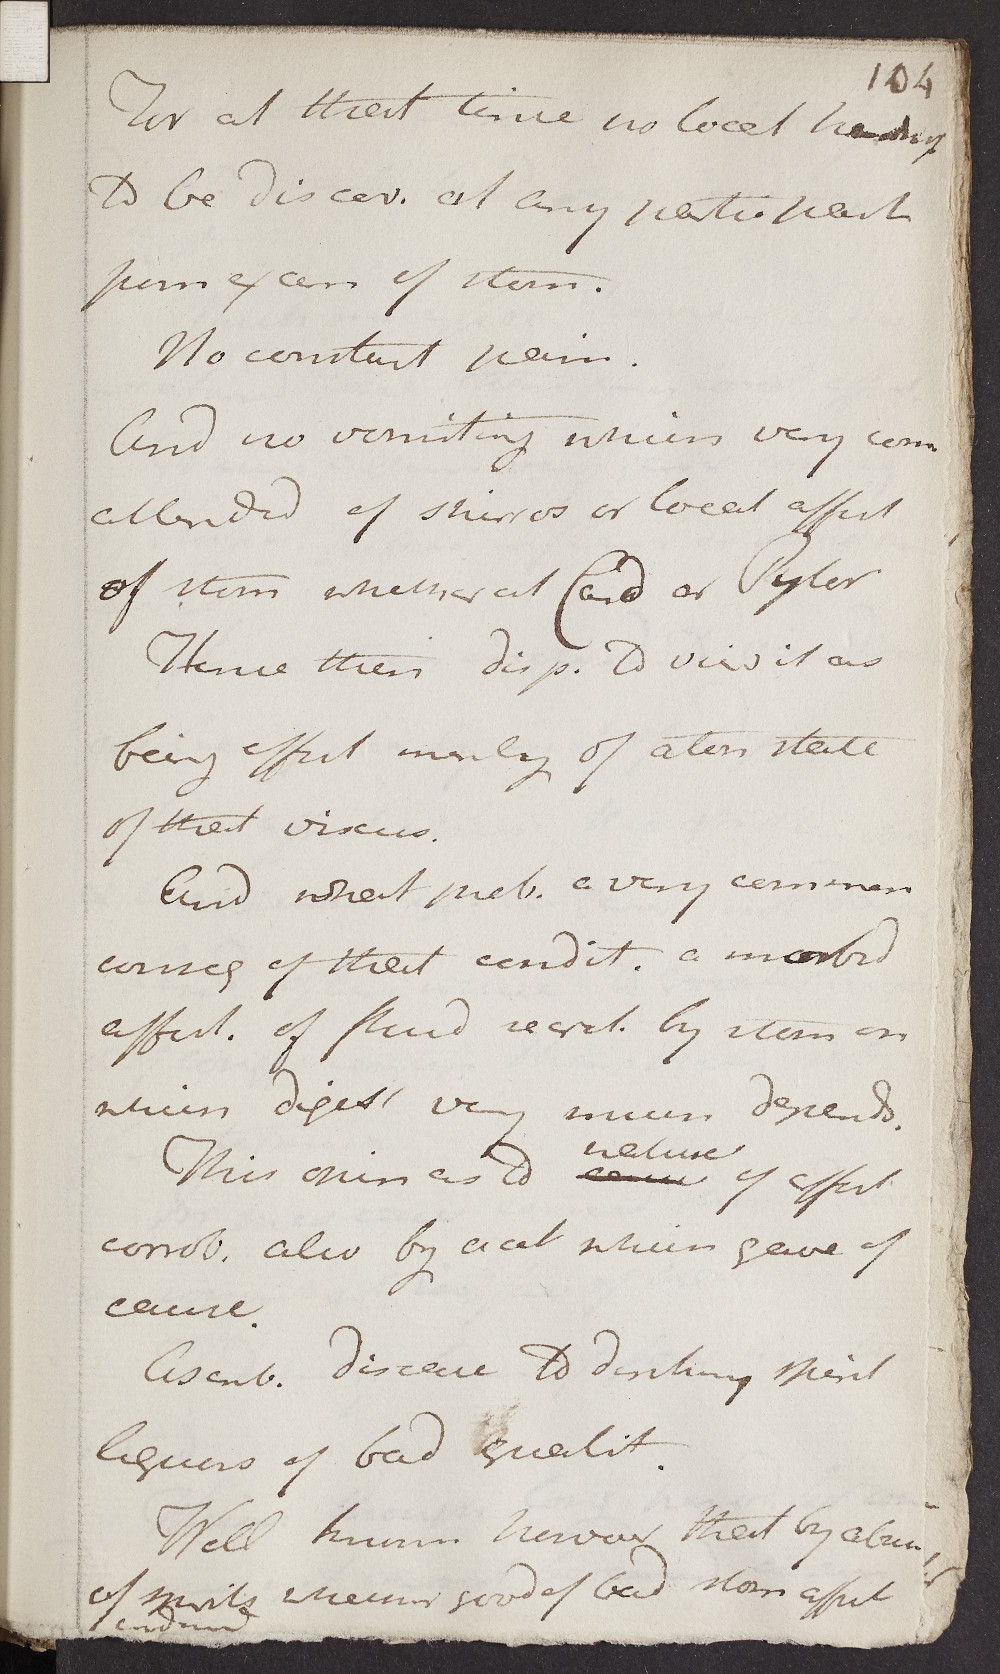 104
For at that time no local hardn
To be discov. at any partic part
from exam of stom.
No constant pain.
And no vomiting which very com
attended of skirros or local affect
of stom whether at Card or Pylor
Hence then disp. To view it as
being effect merely of aton state
of that viscus.
And what prob. a very common
conseq of that condit. a morbid
affect. of fluid secret. by stom on
which digest very much depends.
nature
This opin as To of affect
corrob. also by acct which gave of
cause.
Ascrib. disease To drinking spirit
liquors of bad qualit.
Well known however that by abuse
of spirits whether good of bad stom affect